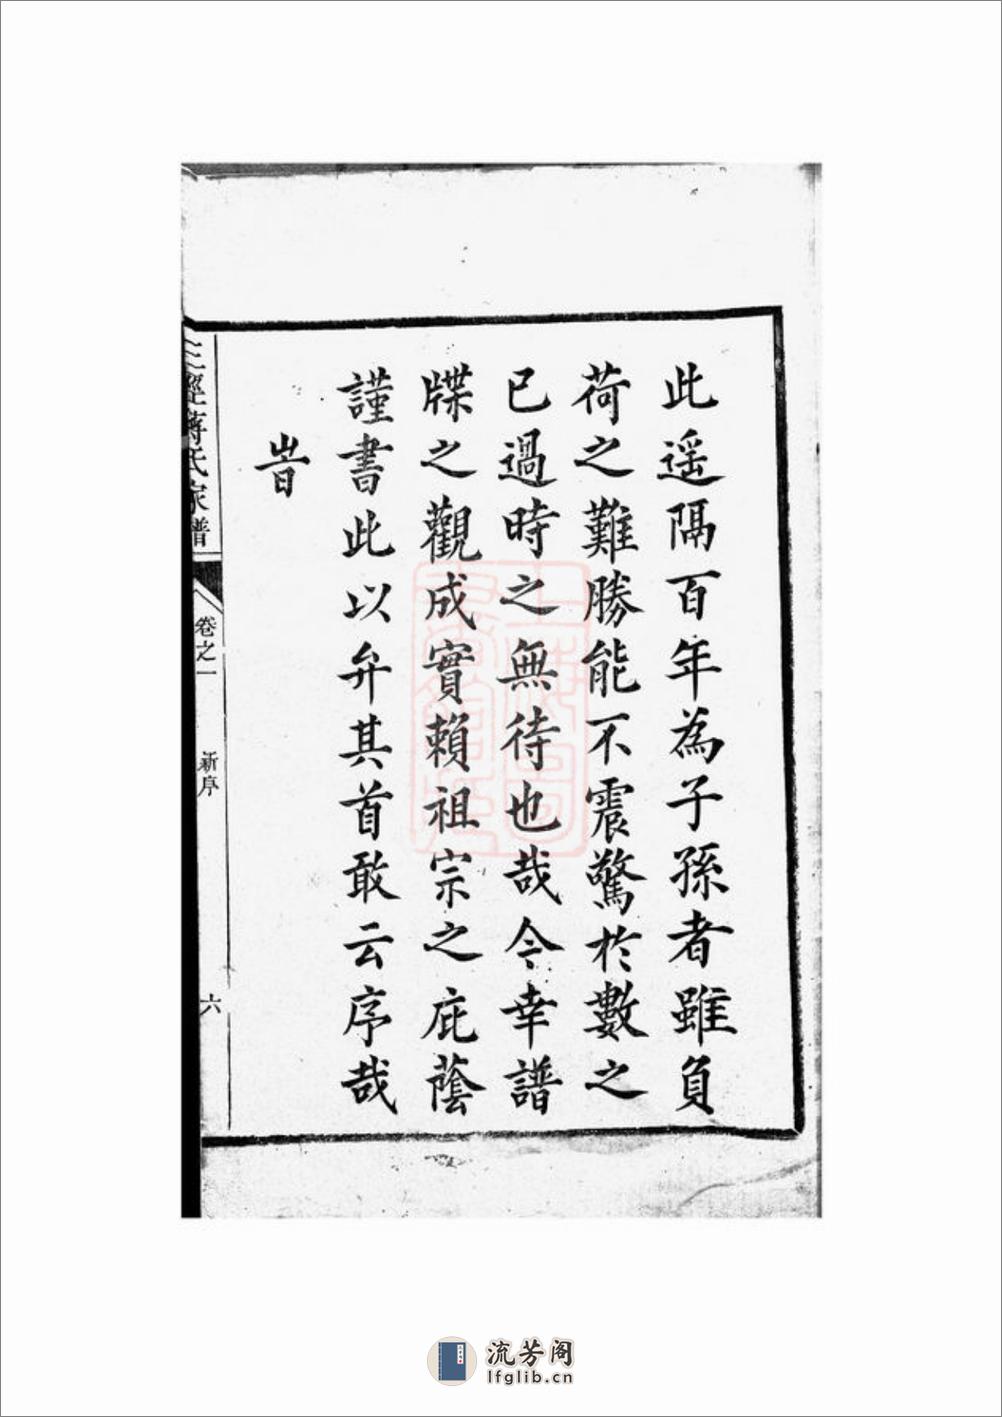 此遥隔百年為子孫者雖負
荷之難勝能不震驚於數之
已過時之無待也哉今幸譜
牒之觀成實賴祖宗之庇蔭
謹書此以弁其首敢云序哉
旹
三徑蔣氏家譜
卷之一
新序
六
流芳阁
lfglib.cn